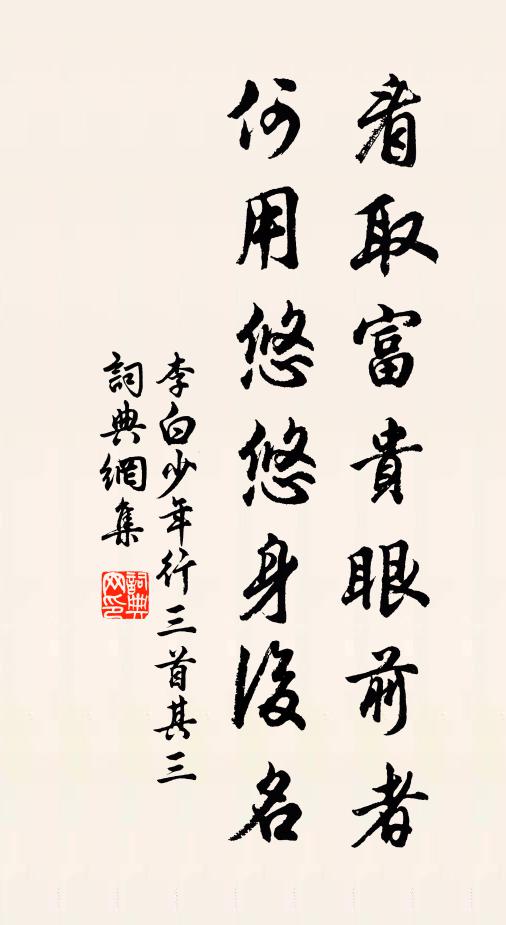 看取富貴眼前者
何用悠悠身後名
李白少年行三首其三
詞典網集
詞典网印